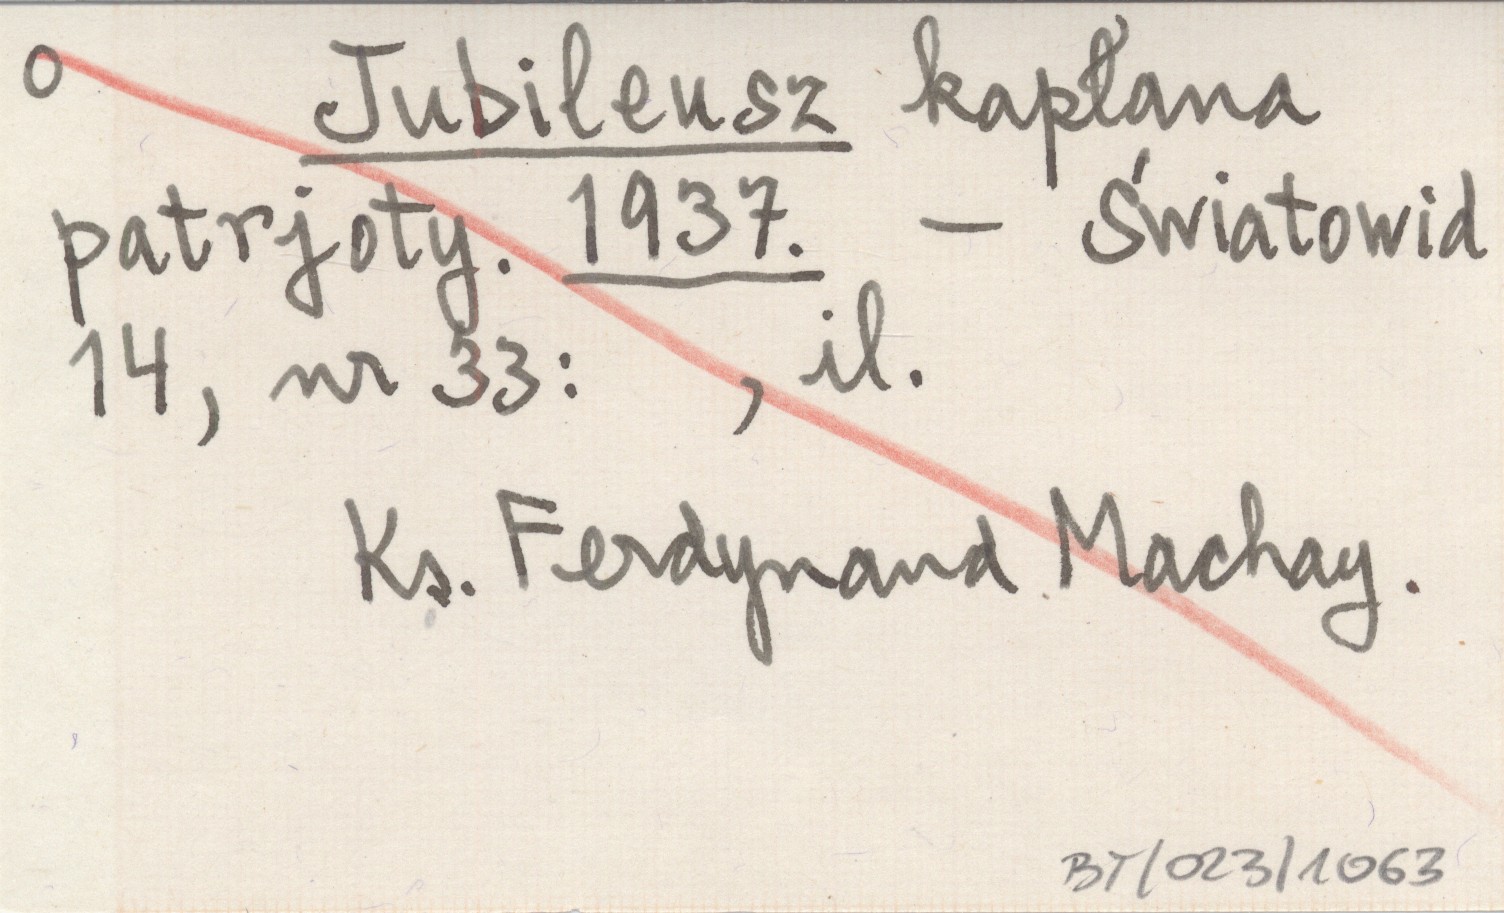 o Jubileusz kapłana
patrjoty. 1937. – Światowid
14, nr 33: , il.
Ks. Ferdynand Machay.
BT/023/1063